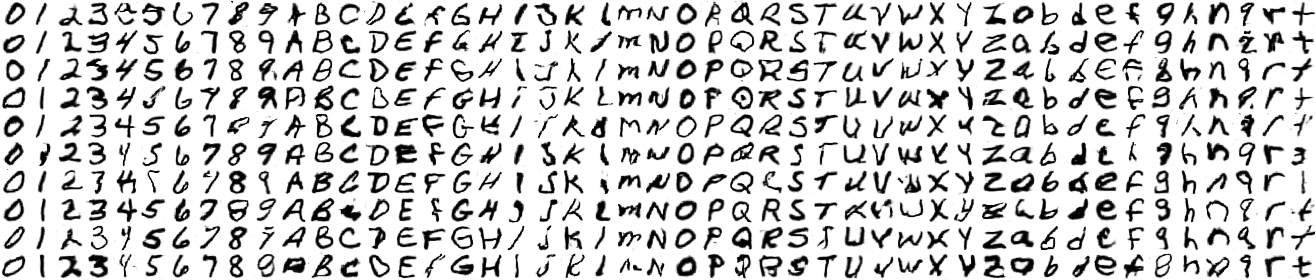 0 1 2 3 5 6 7 8 9 A B C D E f G H I J K l m N O R Q R S T U V W X Y Z a b d e f g h n q r t
0 1 2 3 4 5 6 7 8 9 A B C D E f G H I J K / m N O P Q R S T U V W X Y Z a b d e f g h n r t
0 1 2 3 4 5 6 7 8 9 A B C D E f G H I J k l m N O P Q R S T U V W X Y Z a b d e f g h n q r t
0 1 2 3 4 5 6 7 8 9 A B C D E F G H I J K L m N O P Q R S T U V W X Y Z a b d e f g h n q r t
0 1 2 3 4 5 6 7 A B C D E F G H I J K m N O P Q R S T U V W X Y Z a b d e f g h n q r t
0 1 2 3 4 5 6 7 8 9 A B C D E f G H I J K l m N O P Q R S T U V W X Y Z a b d e g h n q r
0 1 2 3 4 5 6 7 8 9 A B C D E F G H I J K l m N O P Q R S T U V W X Y Z a b d e f g h n q r
0 1 2 3 4 5 6 7 8 9 A B C D E f G H J J K l m N O P Q R S T U V W X Y Z a b d e f g h n q r t
0 1 2 3 4 5 6 7 8 9 A B C D E F G H I J K l m N O P Q R S T U V W X Y Z a b d e f g h n q r t
0 1 2 3 4 5 6 7 8 9 A B C D E F G H I J K l N O P Q R S T U V W X Y Z a b d e f g h n q r t